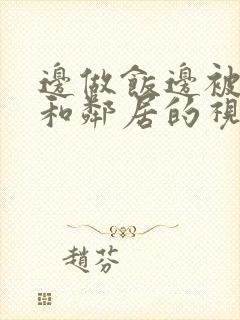 邊做飯邊被
和鄰居的視
趙芬